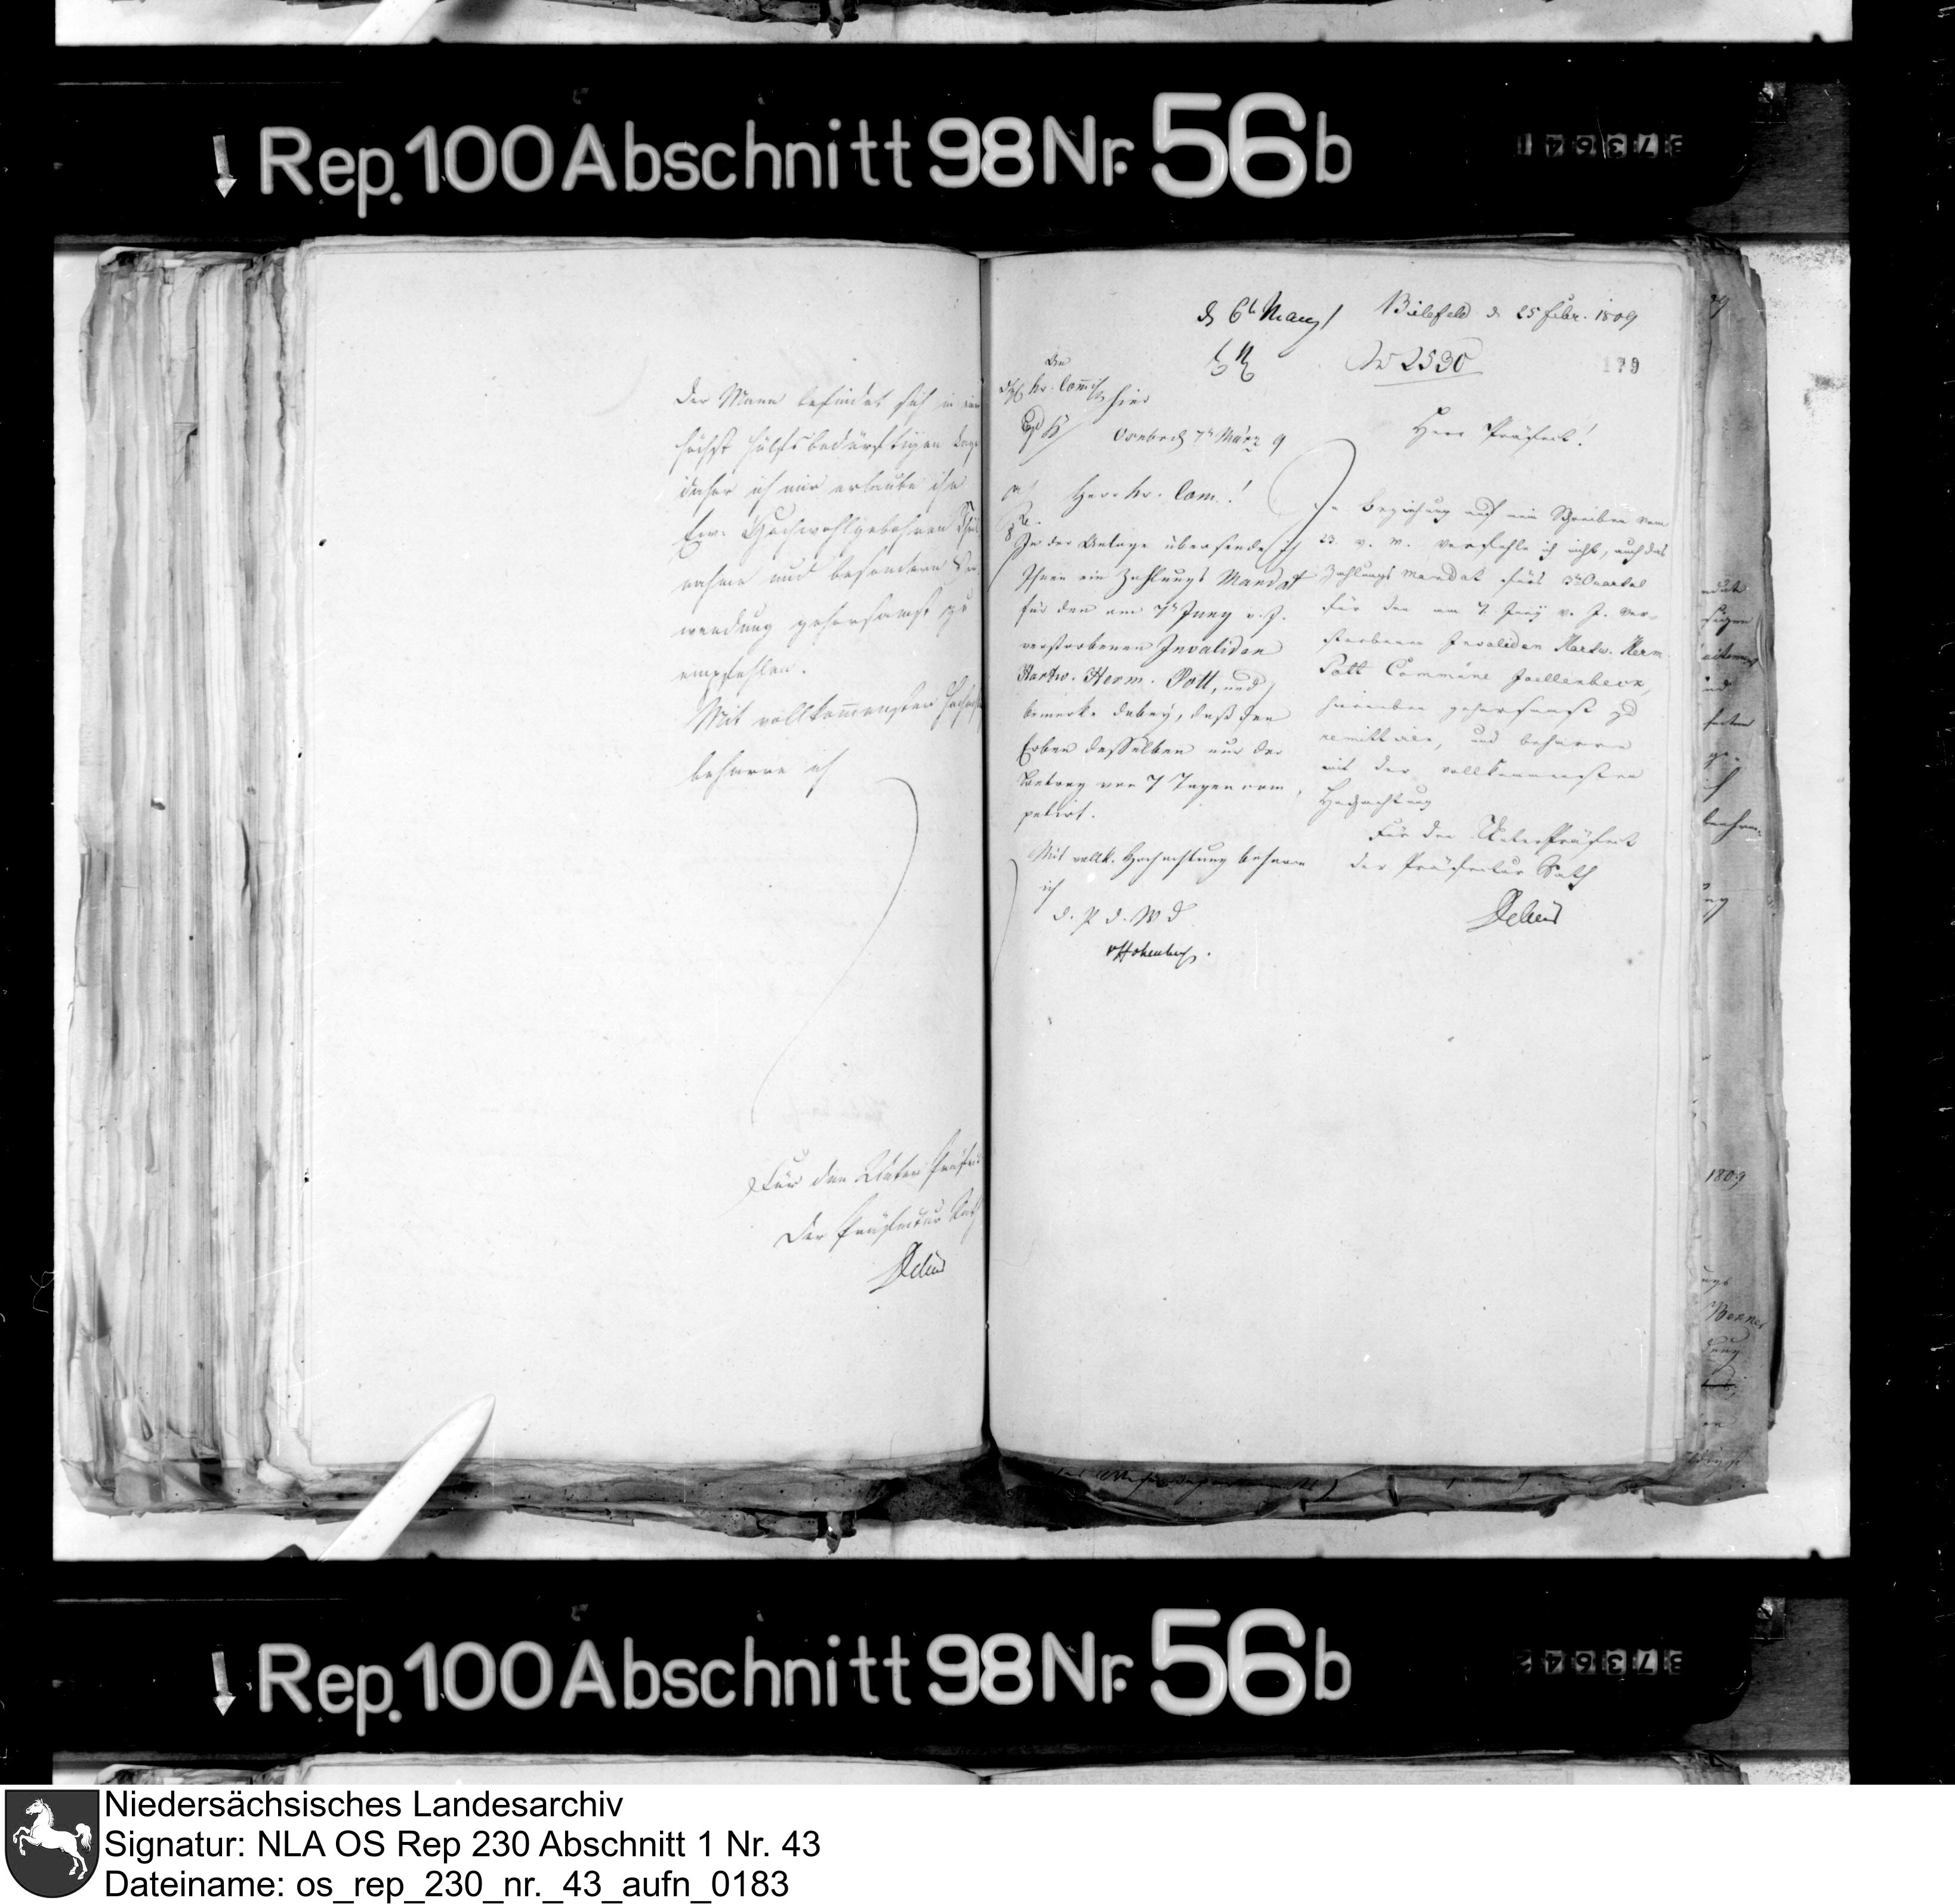 Rep. 100 Abschnitt 98 Nr. 56b
der Mann befindet sich in einer
höchst hülfsbedürftigen Lage
daher ich mir erlaube ihn
Ew. Hochwohlgebohren
nahme und besondern
wendung gehorsamst zu
empfehlen.
Mit vollkommenster Hochach
beharre ich
Für den Unter Präfect
der Präfectur Rath
Delius
d 6t Marz
Bielefeld d 25 Febr. 1809
No 2530
179
An
Kr. Commiss
hier
Osnbrck 7t März 9
Herr Kr. Com.!
In der Anlage übersende ich
Ihnen ein Zahlungs Mandat
für den am 7t Juny v. J.
verstorbenen Invaliden
Hartw. Herm. Pott, und
bemerke dabey, daß den
Erben desselben nur der
Betrag von 7 Tagen com
petirt.
Mit vollk. Hochachtung beharre
ich
d. P. d. W. D
vHohenberg.
Herr Präfect!
In Beziehung auf mein Schreiben vom
23. v. M. verfehle ich nicht, auch das
Zahlungs Mandat fürs 3te Quartal
für den am 7. Juny v. J. ver-
storbenen Invaliden Hartw. Herm.
Pott Commüne Joellenbeck,
hierneben gehorsamst zu
remittiren, und beharre
mit der vollkommensten
Hochachtung
Für den Unter Präfect
der Präfectur Rath
Delius
1809
Rep. 100 Abschnitt 98 Nr. 56b
Niedersächsisches Landesarchiv
Signatur: NLA OS Rep 230 Abschnitt 1 Nr. 43
Dateiname: os_rep_230_nr._43_aufn_0183